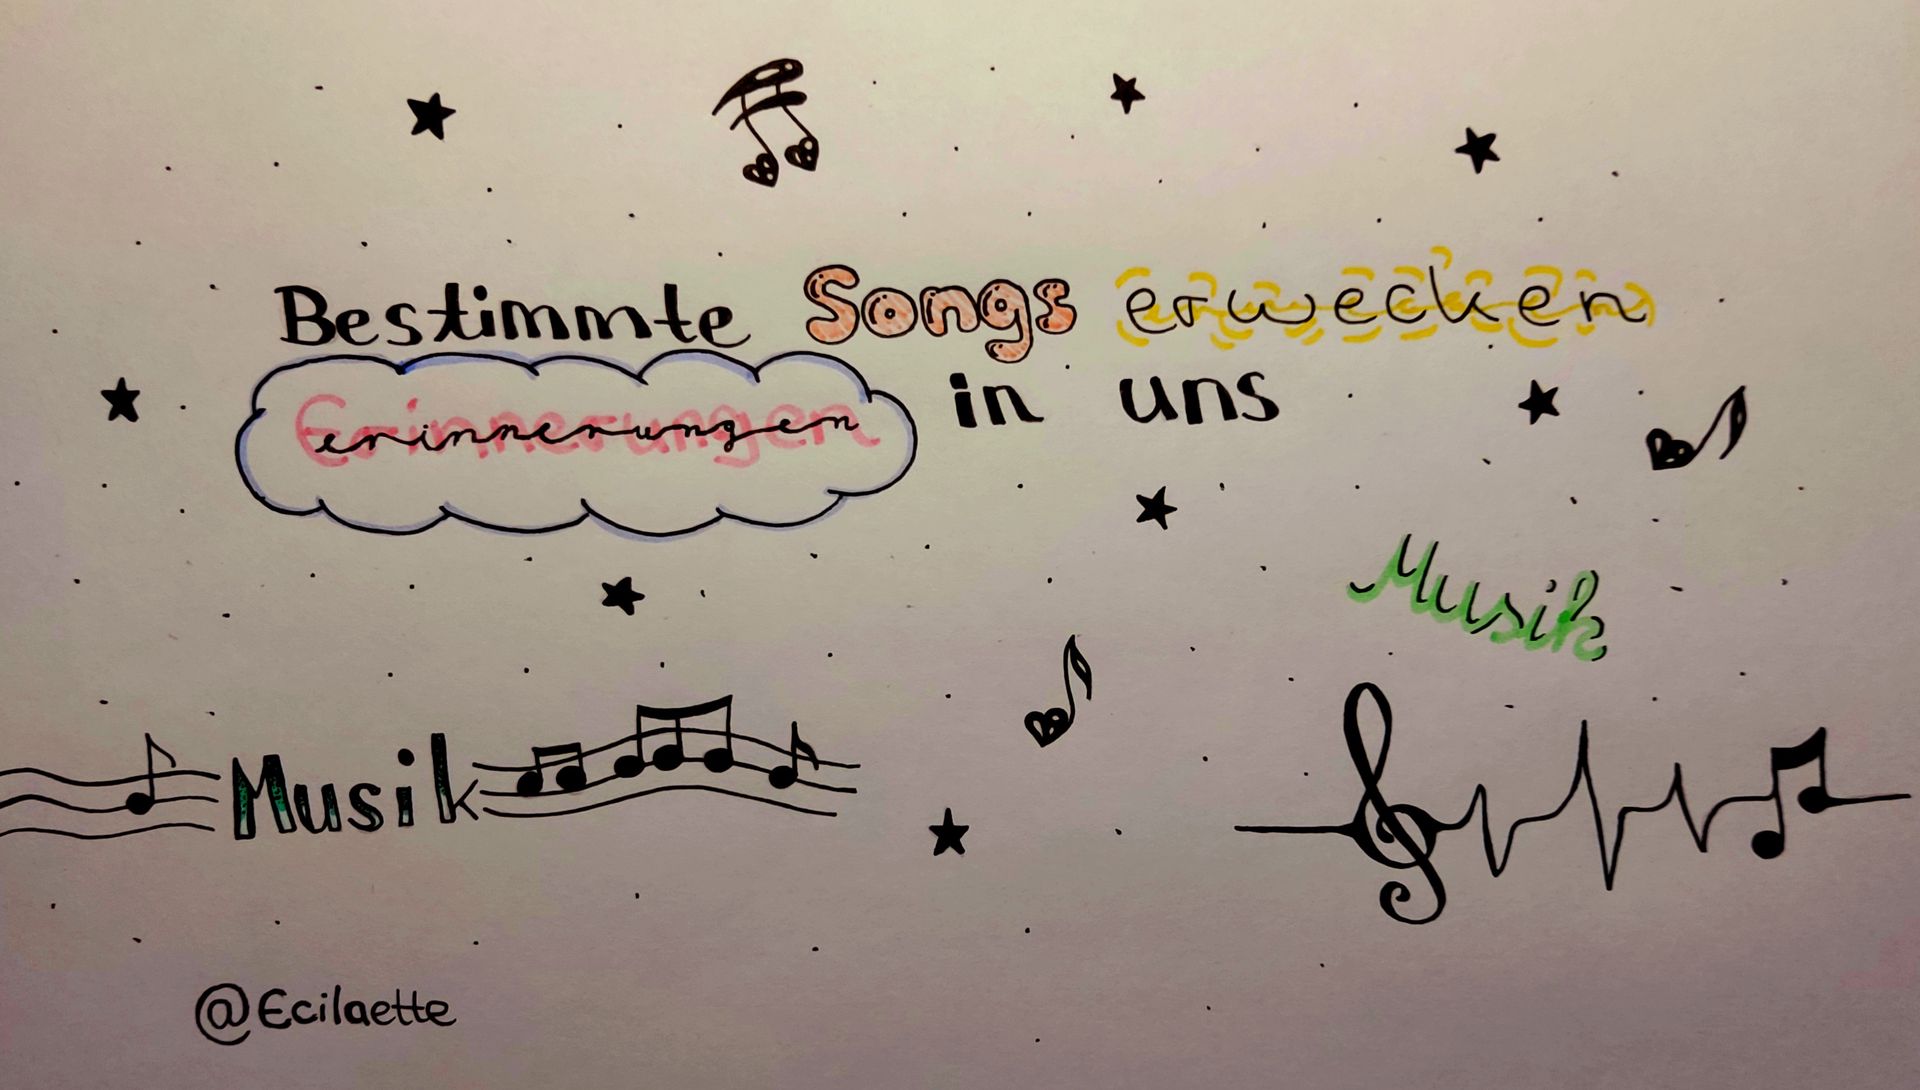 Bestimmte Songs erwecken
erinnerungen in uns
Musik
Musik
@Ecilaette